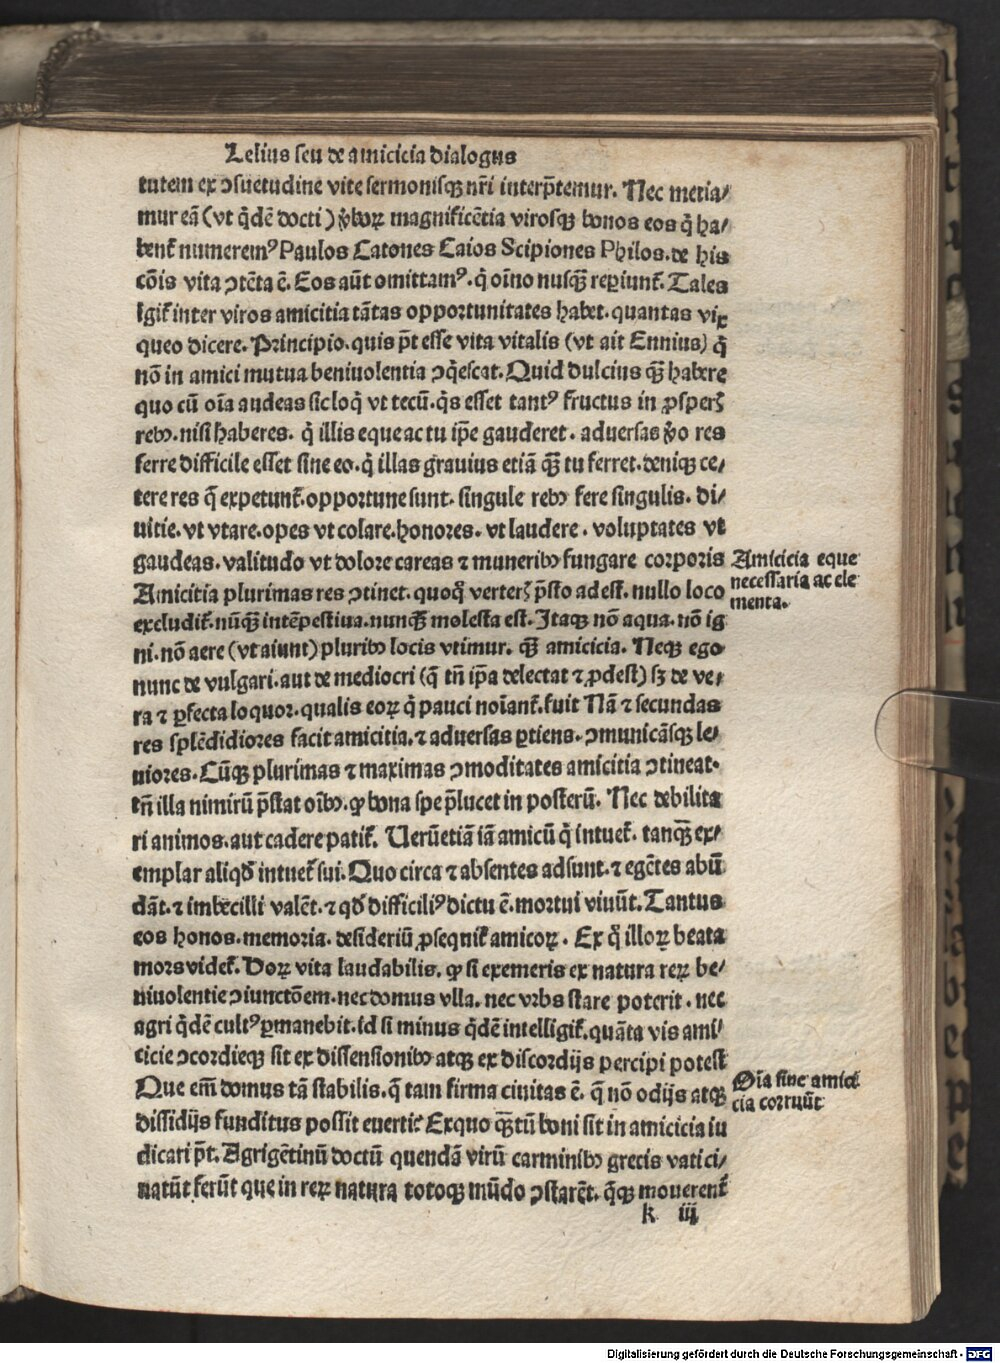 Lelius seu de amicicia dialogus
tutem ex ↄsuetudine vite sermonisqꝫ nr̄i interp̄temur. Nec metia/
mur eā (vt q̄dē docti) v̓boꝝ magnificētia virosqꝫ bonos eos q̄ ha/
bent᷑ numeremꝰ Paulos Catones Caios Scipiones Philos. de his
cōis vita ↄtēta ē. Eos aūt omittamꝰ. q̄ oīno nusqꝫ̄ reꝑiunt᷑. Tales
igit᷑ inter viros amicitia tātas opportunitates habet. quantas vix
queo dicere. Principio. quis p̄t esse vita vitalis (vt ait Ennius) q̄
nō in amici mutua beniuolentia ↄq̄escat. Quid dulcius qꝫ̄ habere
quo cū oīa audeas sic loq̄ vt tecū. q̄s esset tantꝰ fructus in ꝓsperꝭ
rebꝰ. nisi haberes. q̄ illis eque ac tu ip̄e gauderet. aduersas v̓o res
ferre difficile esset sine eo. q̄ illas grauius etiā qꝫ̄ tu ferret. deniqꝫ ce/
tere res q̄ expetunt᷑. opportune sunt. singule rebꝰ fere singulis. di/
uitie. vt vtare. opes vt colare. honores. vt laudere. voluptates vt
gaudeas. valitudo vt dolore careas ⁊ muneribꝰ fungare corporis
Amicitia plurimas res ↄtinet. quoq̄ verterꝭ p̄sto adest. nullo loco
excludit᷑. nūqꝫ̄ intēpestiua. nunqꝫ̄ molesta est. Itaqꝫ nō aqua. nō ig
ni. nō aere (vt aiunt) pluribꝰ locis vtimur. qꝫ̄ amicicia. Neqꝫ ego
nunc de vulgari. aut de mediocri (q̄ tn̄ ip̄a delectat ⁊ ꝓdest) sꝫ de ve/
ra ⁊ ꝑfecta loquor. qualis eoꝝ q̄ pauci noīant᷑. fuit Nā ⁊ secundas
res splēdidiores facit amicitia. ⁊ aduersas ꝑtiens. ↄmunicāsqꝫ le/
uiores. Cūqꝫ plurimas ⁊ maximas ↄmoditates amicitia ↄtineat.
tn̄ illa nimirū p̄stat oībꝰ. ꝙ bona spe p̄lucet in posterū. Nec debilita
ri animos. aut cadere patit᷑. Uerūetiā iā amicū q̄ intuet᷑. tanqꝫ̄ ex/
emplar aliqd̓ intuet᷑ sui. Quo circa ⁊ absentes adsunt. ⁊ egētes abū
dāt. ⁊ imbecilli valēt. ⁊ qd̓ difficiliꝰ dictu ē. mortui viuūt. Tantus
eos honos. memoria. desideriū ꝓsequit᷑ amicoꝝ. Ex q̄ illoꝝ beata
mors videt᷑. Hoꝝ vita laudabilis. ꝙ si exemeris ex natura reꝝ be/
niuolentie ↄiunctōem. nec domus vlla. nec vrbs stare poterit. nec
agri q̄dē cultꝰ ꝑmanebit. id si minus q̄dē intelligit᷑. quāta vis ami/
cicie ↄcordieqꝫ sit ex dissensionibꝰ atqꝫ ex discordijs percipi potest
Que em̄ domus tā stabilis. q̄ tam firma ciuitas ē. q̄ nō odijs atqꝫ
dissidijs funditus possit euerti᷑ Ex quo qꝫ̄tū boni sit in amicicia iu
dicari p̄t. Agrigētinū doctū quendā virū carminibꝰ grecis vatici/
natūt ferūt que in reꝝ natura totoqꝫ mūdo ↄstarēt. q̄qꝫ mouerent᷑
k iij
Amicicia eque
necessaria ac ele
menta.
Oīa sine amici
cia corruūt
Digitalisierung gefördert durch die Deutsche Forschungsgemeinschaft - DFG